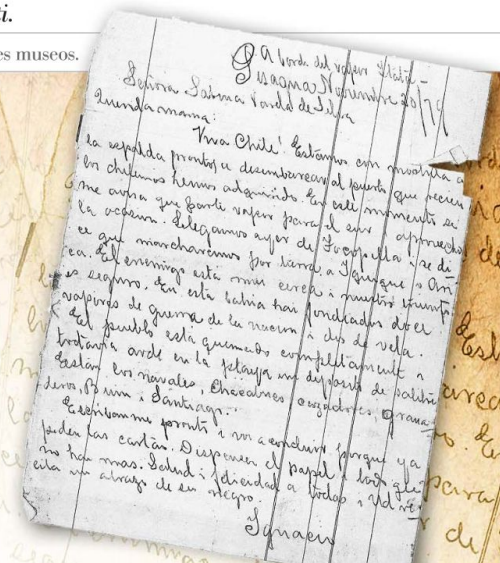 ti.
es museos.
a borda del vapor Itata -
Pisagua Noviembre 20/79
Señora Sabina Varela de Silva
Querida mama:
Viva Chile! Estamos con mochila a
la espalda prontos a desembarcar al puerto que recien
los chilenos hemos adquirido. En este momento se
me avisa que parte vapor para el sur aprovecho
la ocasion. Llegamos ayer de Tocopilla i se di-
ce que marcharemos por tierra a Iquique o Ari
ca. El enemigo está mui cerca i nuestro triunfo
es seguro. En esta bahia hai fondeados doce
vapores de guerra de la nacion i dos de vela.
El pueblo está quemado completamente i
todavia arde en la playa un deposito de salitre
Están los navales, Chacabuco cazadores, Grana-
deros, Buin i Santiago.
Escribanme pronto i voi a concluir porque ya
piden las cartas. Dispensen el papel i que
no hai mas. Salud i felicidad a todos i Ud re-
ciba un abrazo de su negro.
Ignacio